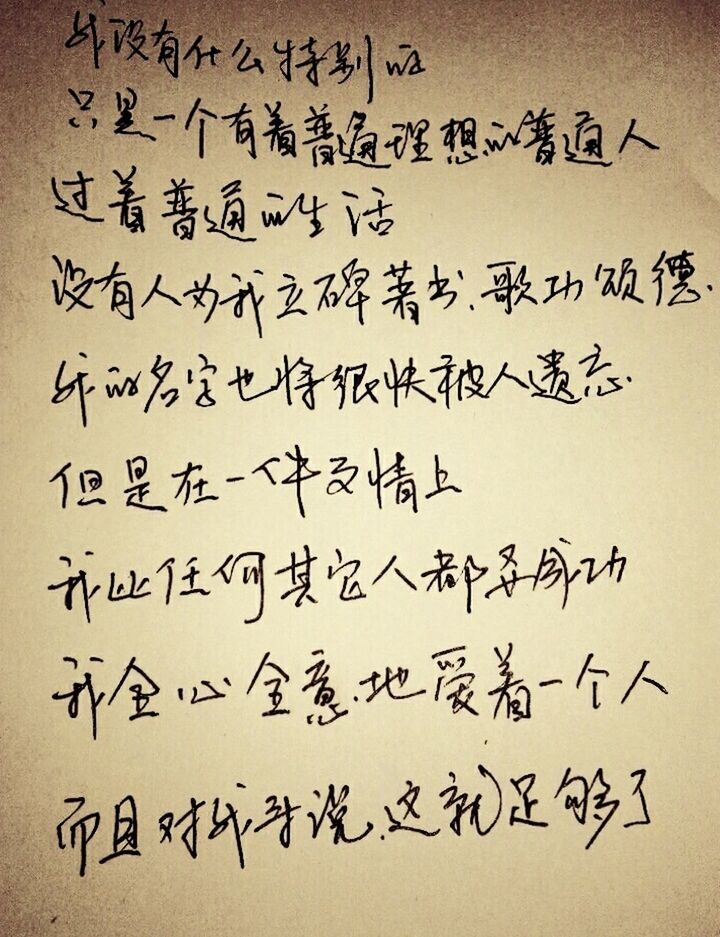 我没有什么特别的
只是一个有着普遍理想的普通人
过着普通的生活
没有人为我立碑著书、歌功颂德.
我的名字也将很快被人遗忘.
但是在一件事情上
我比任何其它人都要成功
我全心全意地爱着一个人
而且对我来说、这就足够了